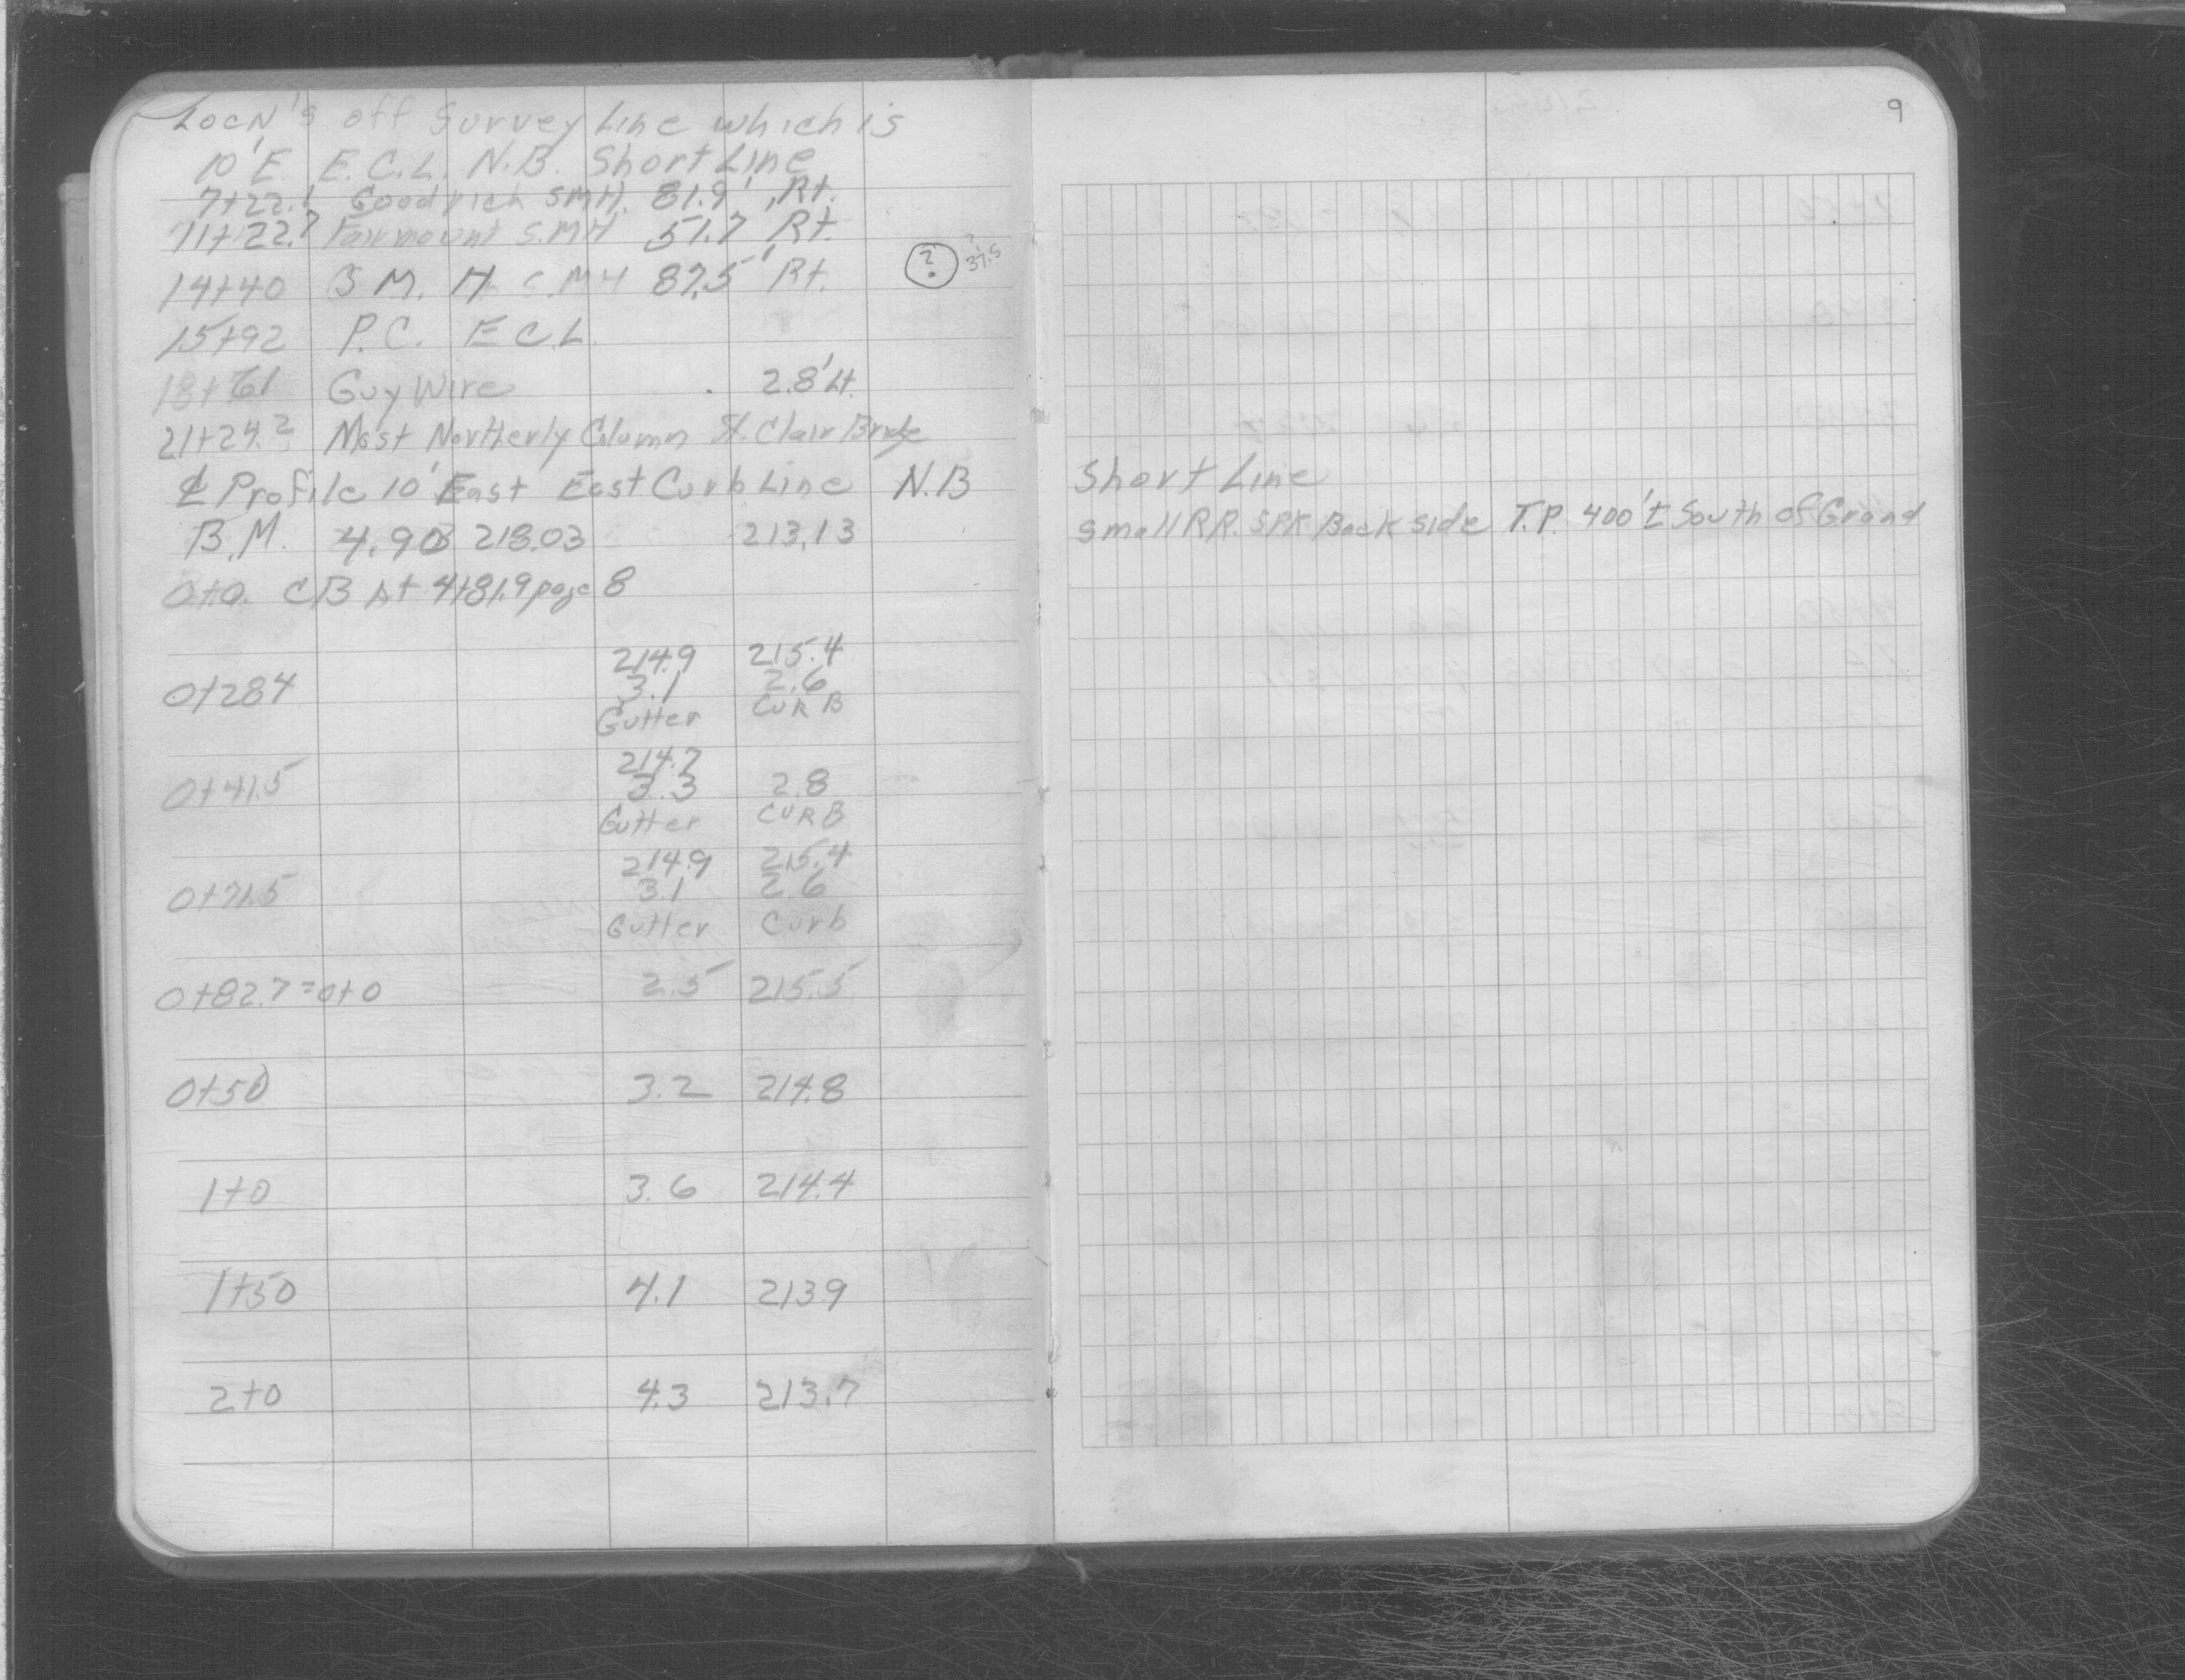 LocN's off Survey Line which is
10' E. E.C.L. N.B. Short Line
7+22.1 Goodrich SMH. 81.9' Rt.
11+22.7 Fairmount S.MH 51.7' Rt.
14+40 S M. H. S.MH 87.5' Rt. ? ? 37.5
15+92 P.C. E C.L.
18+61 Guy Wire 2.8' Lt.
21+24.2 Most Northerly Column St. Clair Bridge
℄ Profile 10' East East Curb Line N.B Short Line
B.M. 4.90 218.03 213.13 Small R.R. SPK Back side T.P. 400'± South of Grand
0+0. CB At 4+81.9 page 8
214.9 215.4
0+28.4 3.1 2.6
Gutter CURB
214.7
0+41.5 3.3 2.8
Gutter CURB
214.9 215.4
0+71.5 3.1 2.6
Gutter Curb
0+82.7=0+0 2.5 215.5
0+50 3.2 214.8
1+0 3.6 214.4
1+50 4.1 213.9
2+0 4.3 213.7
9